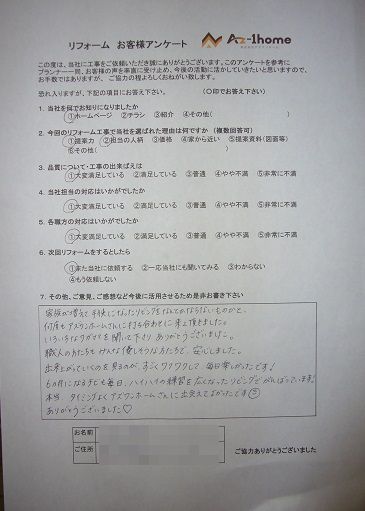 リフォーム お客様アンケート
Az-1home
この度は、当社に工事をご依頼いただき誠にありがとうございます。このアンケートを参考に
プランナー一同、お客様の声を率直に受け止め、今後の活動に活かしていきたいと思いますので、
お手数ではありますが、ご協力の程よろしくおねがい致します。
恐れ入りますが、下記の項目にお答え下さい。 (○印でお答え下さい)
1. 当社を何でお知りになりましたか
①ホームページ ②チラシ ③紹介 ④その他( )
2. 今回のリフォーム工事で当社を選ばれた理由は何ですか (複数回答可)
①提案力 ②担当の人柄 ③価格 ④家から近い ⑤提案資料(図面等)
⑥その他( )
3. 品質について・工事の出来ばえは
①大変満足している ②満足している ③普通 ④やや不満 ⑤非常に不満
4. 当社担当の対応はいかがでしたか
①大変満足している ②満足している ③普通 ④やや不満 ⑤非常に不満
5. 各職方の対応はいかがでしたか
①大変満足している ②満足している ③普通 ④やや不満 ⑤非常に不満
6. 次回リフォームをするとしたら
①また当社に依頼する ②一応当社にも聞いてみる ③わからない
④もう依頼しない
7. その他、ご意見、ご感想など今後に活用させるため是非お書き下さい
家族が増えて手狭になったリビングをなんとかならないものかと、
何度もアズワンホームさんに打ち合わせに来て頂きました。
いろいろなワガママを聞いて下さりありがとうございました。
職人の方たちもみんな優しそうな方たちで、安心しました。
出来上がっていくのを見るのが、すごくワクワクして、毎日楽しかったです!
6カ月になる子どもも毎日、ハイハイの練習を広くなったリビングでがんばっています!
本当、タイミングよくアズワンホームさんに出会えてよかったです
ありがとうございました♡
お名前
ご住所
ご協力ありがとうございました